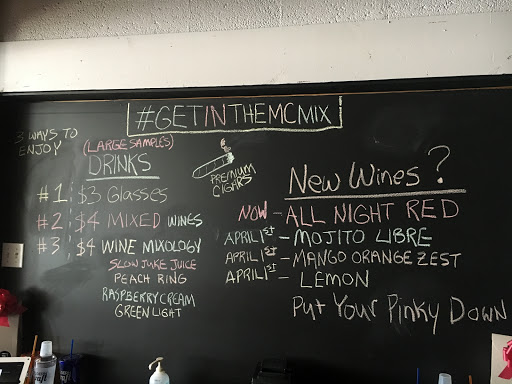 #GETINTHEMCMIX
3 WAYS TO
ENJOY
(LARGE SAMPLES)
DRINKS
#1 $3 Glasses
#2 $4 MIXED WINES
#3 $4 WINE MIXOLOGY
SLOW JUKE JUICE
PEACH RING
RASPBERRY CREAM
GREEN LIGHT
PREMIUM
CIGARS
New Wines?
NOW - ALL NIGHT RED
APRIL 1ST - MOJITO LIBRE
APRIL 1ST - MANGO ORANGE ZEST
APRIL 1ST - LEMON
Put Your Pinky Down